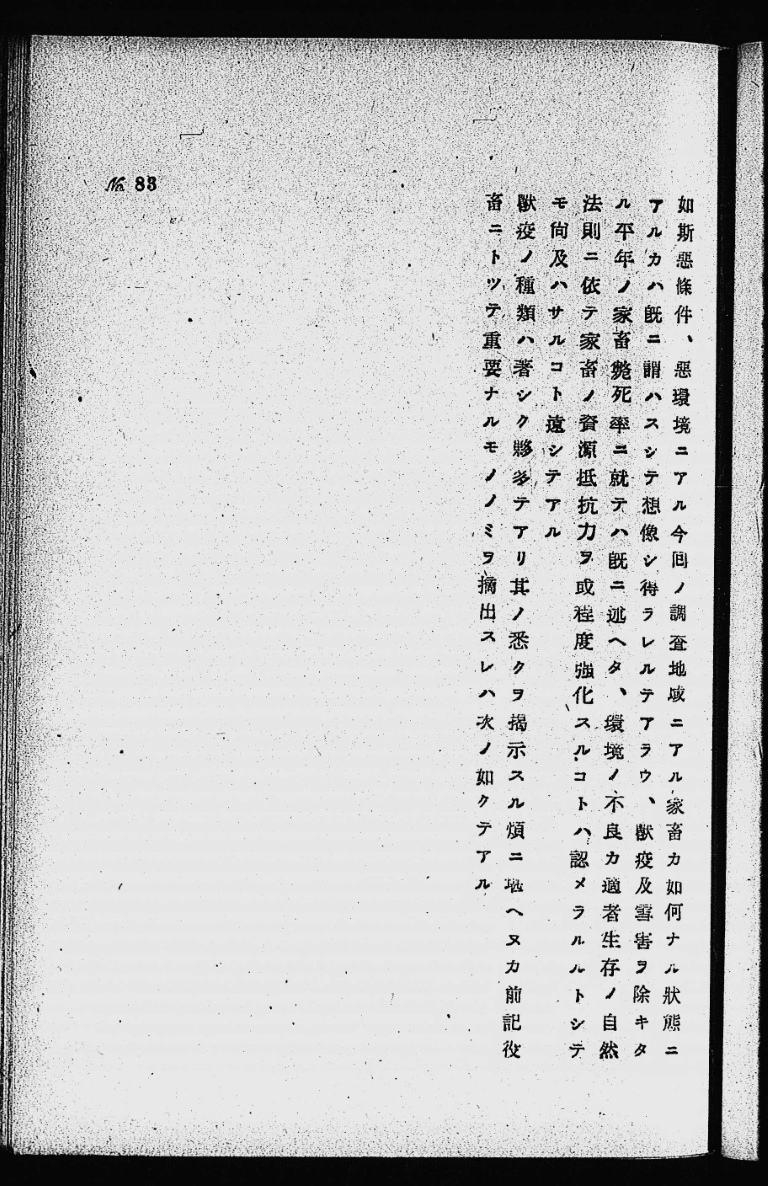 如斯惡條件、惡環境ニアル今囘ノ調査地域ニアル家畜カ如何ナル狀態ニ
アルカハ既ニ謂ハスシテ想像シ得ラレルテアラウ、獸疫及雪害ヲ除キタ
ル平年ノ家畜斃死率ニ就テハ既ニ述ヘタ、環境ノ不良カ適者生存ノ自然
法則ニ依テ家畜ノ資源抵抗力ヲ或程度强化スルコトハ認メラルルトシテ
モ尙及ハサルコト遠シテアル
獸疫ノ種類ハ著シク夥多テアリ其ノ悉クヲ揭示スル煩ニ堪ヘヌカ前記役
畜ニトツテ重要ナルモノノミヲ摘出スレハ次ノ如クテアル
№ 83